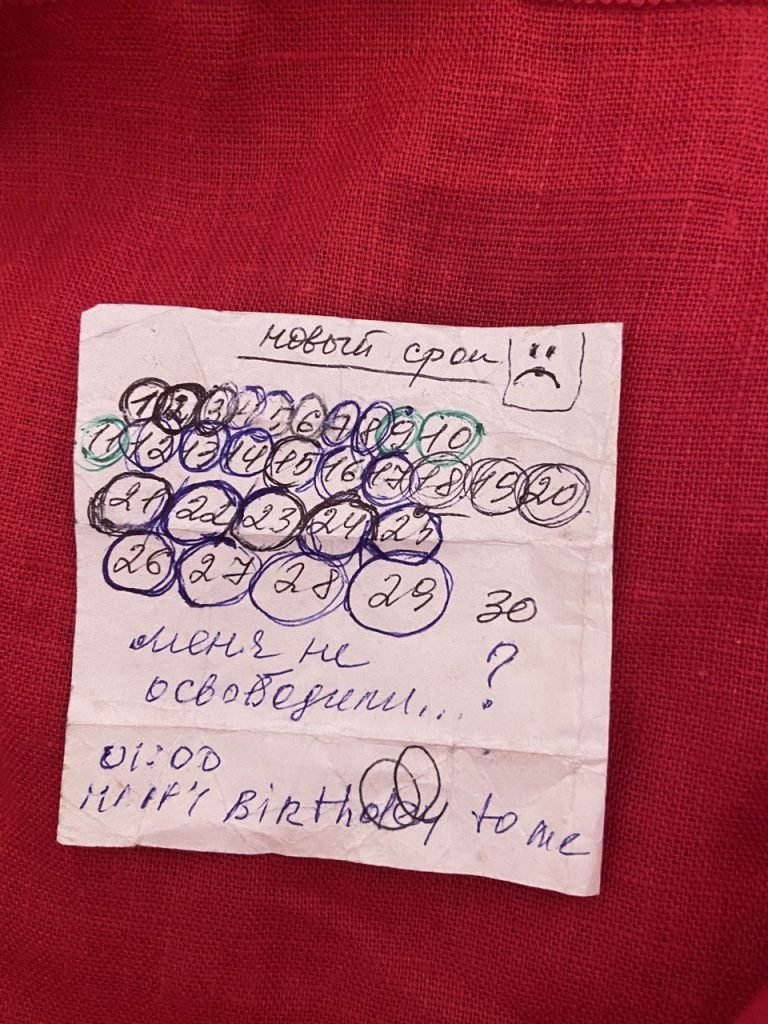 новый срок
1 2 3 4 5 6 7 8 9 10
11 12 13 14 15 16 17 18 19 20
21 22 23 24 25
26 27 28 29 30
меня не ?
освободили...
01:00
HAPPY BIRthday to me